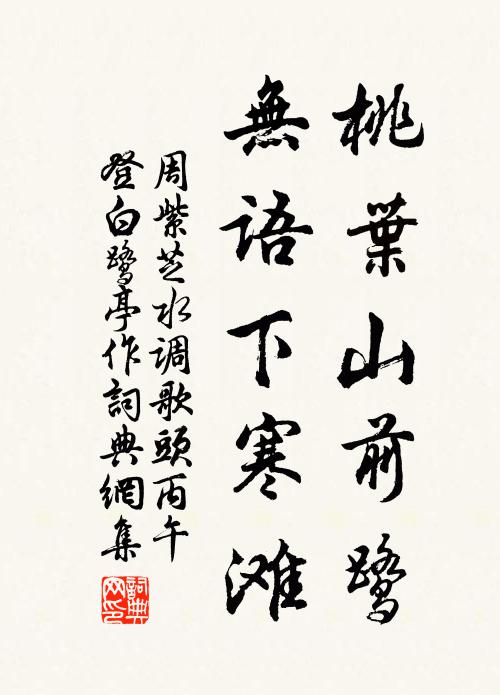 桃葉山前鹭
無語下寒滩
周紫芝水调歌頭丙午
登白鹭亭作詞典網集
詞典網印